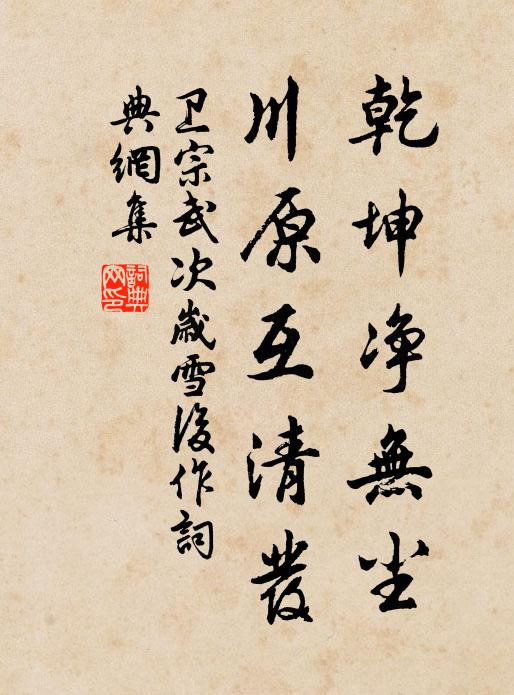 乾坤净無尘
川原互清發
卫宗武次歲雪後作詞
典網集
詞典网印